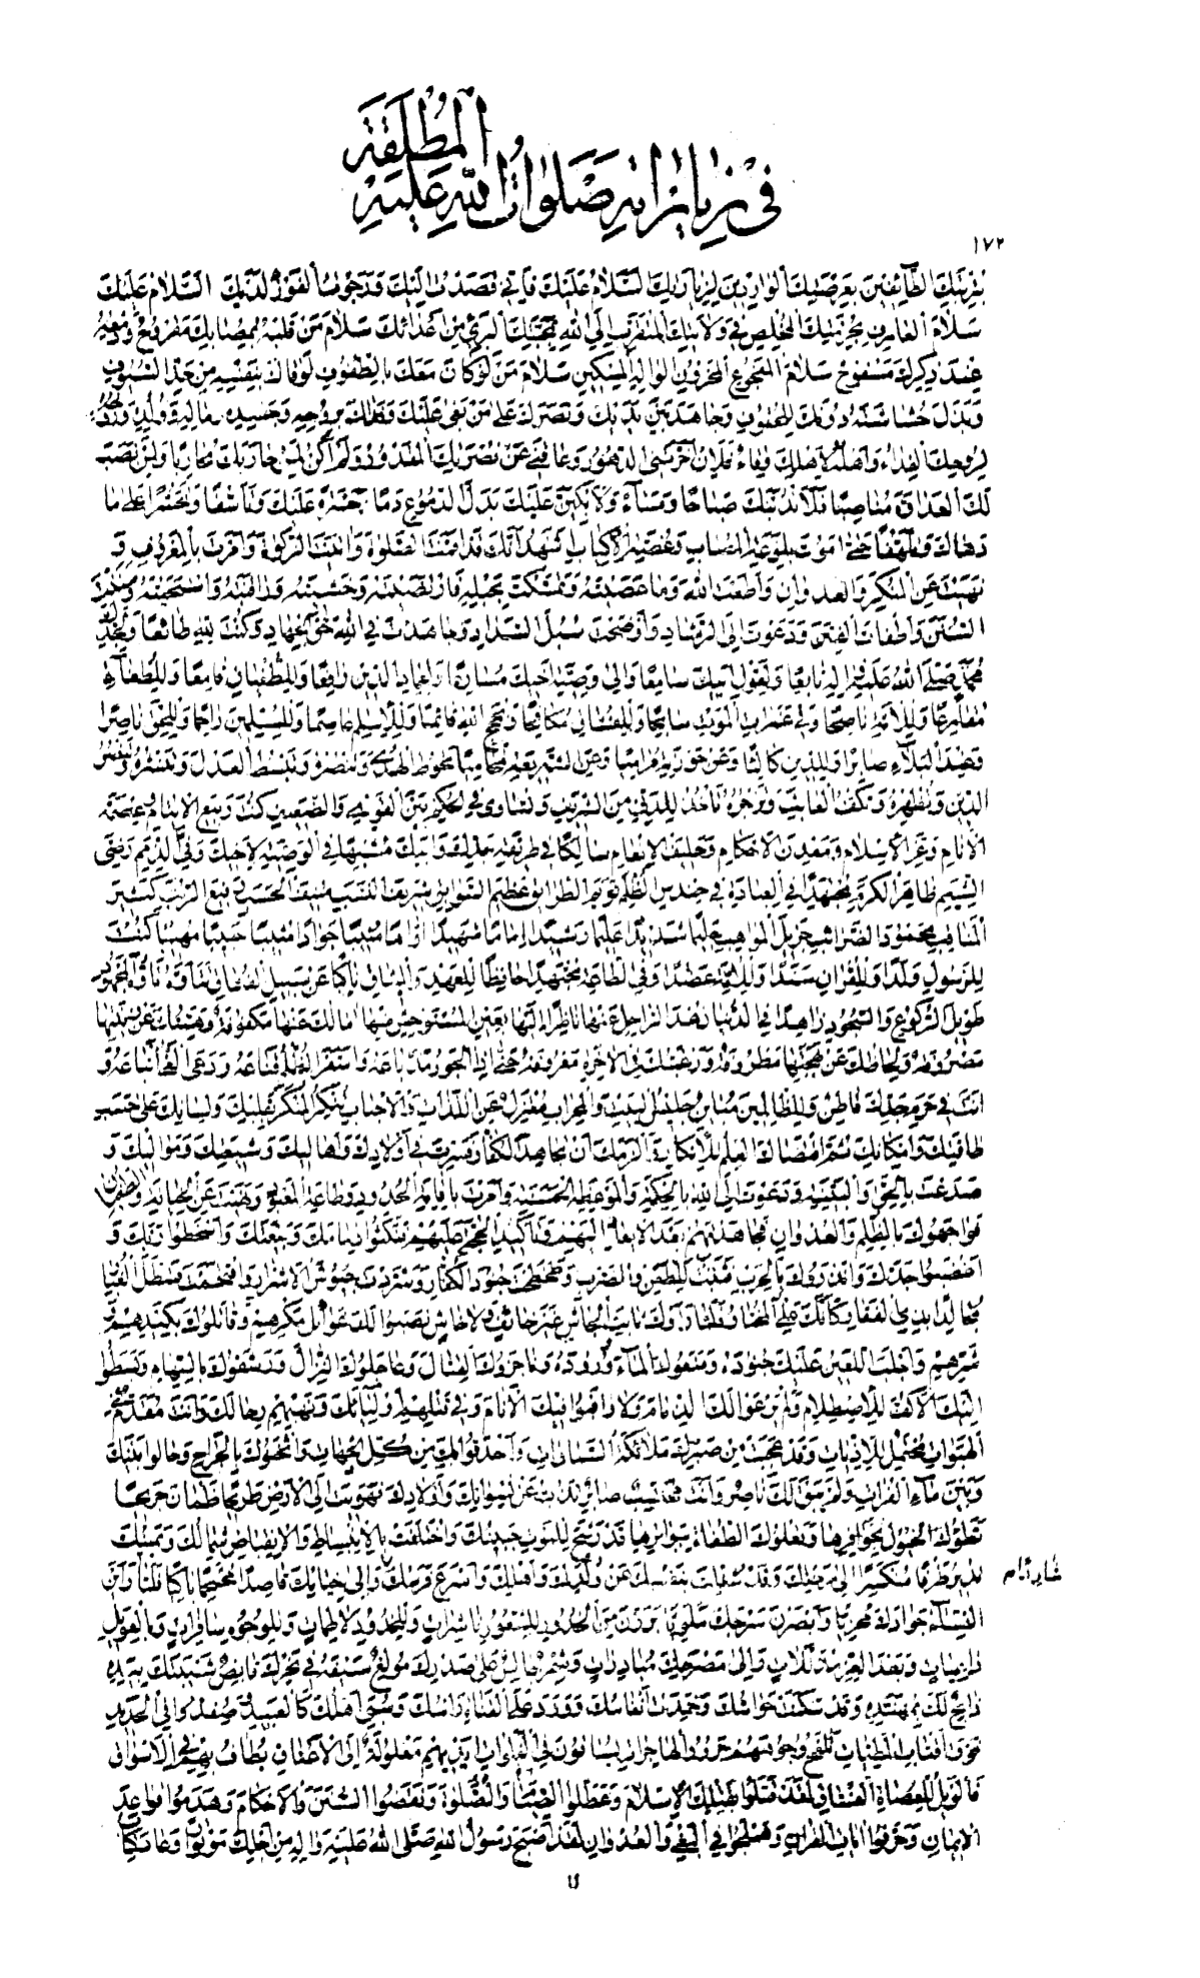 المطلقة
في زياراته صلوات الله عليه
١٧٢
بقربتك الطائفين بعرصتك الواردين لزيارتك السلام عليك فاني قصدت اليك ورجوت الفوز لديك السلام عليك
سلام العارف بحرمتك المخلص في ولايتك المتقرب الى الله بمحبتك البريء من اعدائك سلام من قلبه بمصابك مقروح ودمعه
عند ذكرك مسفوح سلام المفجوع المحزون الواله المسكين سلام من لو كان معك بالطفوف لوقاك بنفسه من حد السيوف
وبذل حشاشته دونك للحتوف وجاهد بين يديك ونصرك على من بغى عليك وفداك بروحه وجسده وماله وولده وروحه
لروحك الفداء واهله لاهلك وقاء فلئن اخرتني الدهور وعاقني عن نصرتك المقدور ولم اكن لمن حاربك محاربا ولمن نصب
لك العداوة مناصبا فلاندبنك صباحا ومساء ولابكين عليك بدل الدموع دما حسرة عليك وتاسفا وتحسرا على ما
دهاك وتلهفا حتى اموت بلوعة المصاب وغصة الاكتياب اشهد انك قد اقمت الصلوة واتيت الزكوة وامرت بالمعروف و
نهيت عن المنكر والعدوان واطعت الله وما عصيته وتمسكت بحبله فارتضيته وخشيته وراقبته واستحببته وسننت
السنن واطفأت الفتن ودعوت الى الرشاد واوضحت سبل السداد وجاهدت في الله حق الجهاد وكنت لله طائعا ولجدك
محمد صلى الله عليه واله تابعا ولقول ابيك سامعا والى وصية اخيك مسارعا ولعماد الدين رافعا وللطغيان قامعا وللطغاة
مقارعا وللامة ناصحا وفي غمرات الموت سابحا وللفساق مكافحا وبحجج الله قائما وللاسلام عاصما وللمسلمين راحما وللحق ناصرا
وعند البلاء صابرا وللدين كالئا وعن حوزته مراميا وعن الشريعة محاميا تحوط الهدى وتنصره وتبسط العدل وتنشره وتنصر
الدين وتظهره وتكف العابث وتزجره تأخذ للدني من الشريف وتساوي في الحكم بين القوي والضعيف كنت ربيع الايتام وعصمة
الانام وعز الاسلام ومعدن الاحكام وحليف الانعام سالكا في طريقة جدك وابيك مشبها في الوصية لاخيك وفي الذمم رضي
الشيم ظاهر الكرم مجتهدا في العبادة في حندس الظلم قويم الطرائق عظيم السوابق شريف النسب منيف الحسب رفيع الرتب كثير
المناقب محمود الضرائب جزيل المواهب حليما شديدا عليما رشيدا اماما شهيدا اواها منيبا جوادا مثيبا حبيبا مهيبا كنت
للرسول ولدا وللقران سندا وللامة عضدا وفي الطاعة مجتهدا حافظا للعهد والميثاق ناكبا عن سبيل الفساق
طويل الركوع والسجود زاهدا في الدنيا زهد الراحل عنها ناظرا اليها بعين المستوحش منها امالك عنها مكفوفة وهمتك عن زينتها
مصروفة ولحاظك عن بهجتها مطروفة ورغبتك في الاخرة معروفة حتى اذا الجور مد باعه واسفر الظلم قناعه ودعى الغي اتباعه و
انت في حرم جدك قاطن وللظالمين مباين جليس البيت والمحراب معتزل عن اللذات والاحباب تنكر المنكر بقلبك ولسانك على حسب
طاقتك وامكانك ثم اقتضاك العلم للانكار والزمك ان تجاهد الكفار فسرت في اولادك واهاليك وشيعتك ومواليك و
صدعت بالحق والبينة ودعوت الى الله بالحكمة والموعظة الحسنة وامرت باقامة الحدود وطاعة المعبود ونهيت عن الخيانة والطغيان
فواجهوك بالظلم والعدوان فجاهدتهم بعد الايعاز اليهم وتأكيد الحجة عليهم فنكثوا ذمامك وبيعتك واسخطوا ربك و
اغضبوا جدك وانذروك بالحرب فثبت للطعن والضرب وطحطحت جنود الكفار وشردت جيوش الاشرار واقتحمت قسطل الغبار
مجالدا بذي الفقار كانك علي المختار فلما رأوك ثابت الجاش غير خائف ولا خاش نصبوا لك غوائل مكرهم وقاتلوك بكيدهم و
شرهم واجلب اللعين عليك جنوده ومنعوك الماء ووروده وناجزوك القتال وعاجلوك النزال ورشقوك بالسهام وبسطوا
اليك الاكف للاصطلام ولم يرعوا لك الذمام ولا راقبوا فيك الانام وفي قتلهم اوليائك ونهبهم رحالك وانت مقدم في
الهبوات محتمل للاذيات وقد عجبت من صبرك ملائكة السماوات واحدقوا بك من كل الجهات واثخنوك بالجراح وحالوا بينك
وبين ماء الفرات ولم يبق لك ناصر وانت محتسب صابر تذب عن نسوانك واولادك فهويت الى الارض طريحا ظمآن جريحا
تطؤك الخيول بحوافرها وتعلوك الطغاة ببواترها قد رشح للموت جبينك واختلفت بالانبساط والانقباض شمالك ويمينك
غابر تام
تدير طرفا منكسرا الى رحلك وقد شغلت بنفسك عن ولدك واهلك واسرع فرسك والى خيامك قاصدا محمحما باكيا فلما رأين
النساء جوادك مخزيا وابصرن سرجك ملويا برزن من الخدور للشعور ناشرات وللخدود لاطمات وللوجوه سافرات وبالعويل
داعيات وبعد العز مذللات والى مصرعك مبادرات وشمر جالس على صدرك مولغ سيفه في نحرك قابض شيبتك بيده
ذابح لك بمهنده وقد سكنت حواسك وخمدت انفاسك وورد على القناة راسك وسبي اهلك كالعبيد وصفدوا في الحديد
فوق اقتاب المطيات تلفح وجوههم حرور الهاجرات يساقون في الفلوات ايديهم مغلولة الى الاعناق يطاف بهم في الاسواق
فالويل للعصاة الفساق لقد قتلوا بقتلك الاسلام وعطلوا الصيام والصلوة ونقضوا السنن والاحكام وهدموا قواعد
الايمان وحرفوا ايات القران وهملجوا في البغي والعدوان لقد اصبح رسول الله صلى الله عليه واله من اجلك موتورا وعاد كتاب